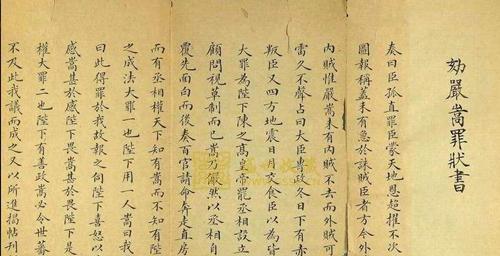 劾嚴嵩罪狀書
奏曰臣孤直罪臣蒙天地恩超擢不次
圖報稱蓋未有急於誅賊臣者方今外
内賊惟嚴嵩未有内賊不去而外賊可
雷久不聲占曰大臣專政冬日下有赤
叛臣又四方地震日月交食臣以為皆
大罪為陛下陳之高皇帝罷丞相設立
顧問視草制而已嵩乃儼然以丞相自
覆先面白而後奏百官請命奔走直房
而有丞相權天下知有嵩而不知有陛
之成法大罪一也陛下用一人嵩曰我
曰此得罪於我故報之伺陛下喜怒以
感嵩甚於感陛下畏嵩甚於畏陛下是
權大罪二也陛下有善政嵩必令世蕃
不及此我議而成之又以所進揭帖刊